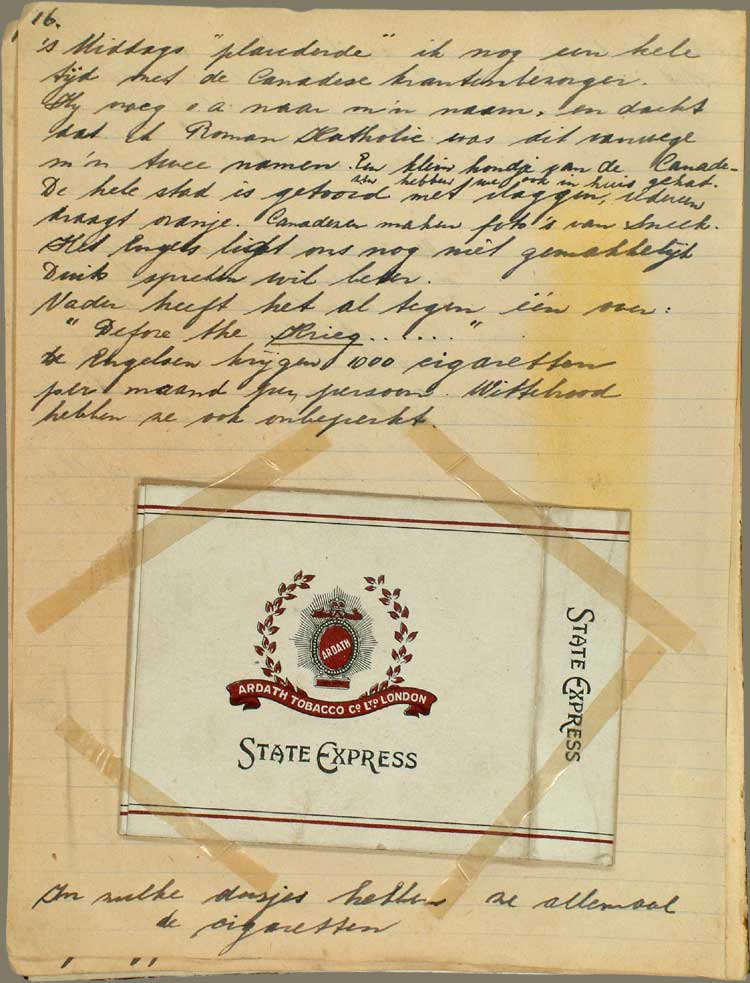 16.
's Middags "plauderde" ik nog een hele
tijd met de Canadese krantenbezorger.
Hy vroeg o.a. naar m'n naam, en dacht
dat ik Roman Katholic was dit vanwege
m'n twee namen. Een klein hondje van de Canade-
zen hebben we ook in huis gehad.
De hele stad is getooid met vlaggen, iedereen
draagt oranje. Canadezen maken foto's van Sneek.
Het Engels ligt ons nog niet gemakkelijk
Duits spreken wil beter.
Vader heeft het al tegen één over:
"Before the Krieg......"
De Engelsen krijgen 1000 cigaretten
per maand per persoon. Wittebrood
hebben ze ook onbeperkt.
ARDATH
ARDATH TOBACCO CO LTD LONDON
STATE EXPRESS
STATE EXPRESS
In zulke doosjes hebben ze allemaal
de cigaretten